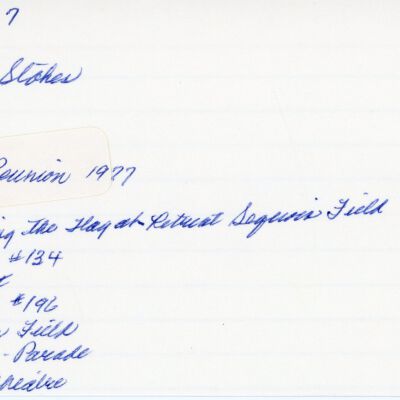 7
Stokes
Reunion 1977
ing the Flag at Retreat Sequoia Field
#134
#196
Field
- Parade